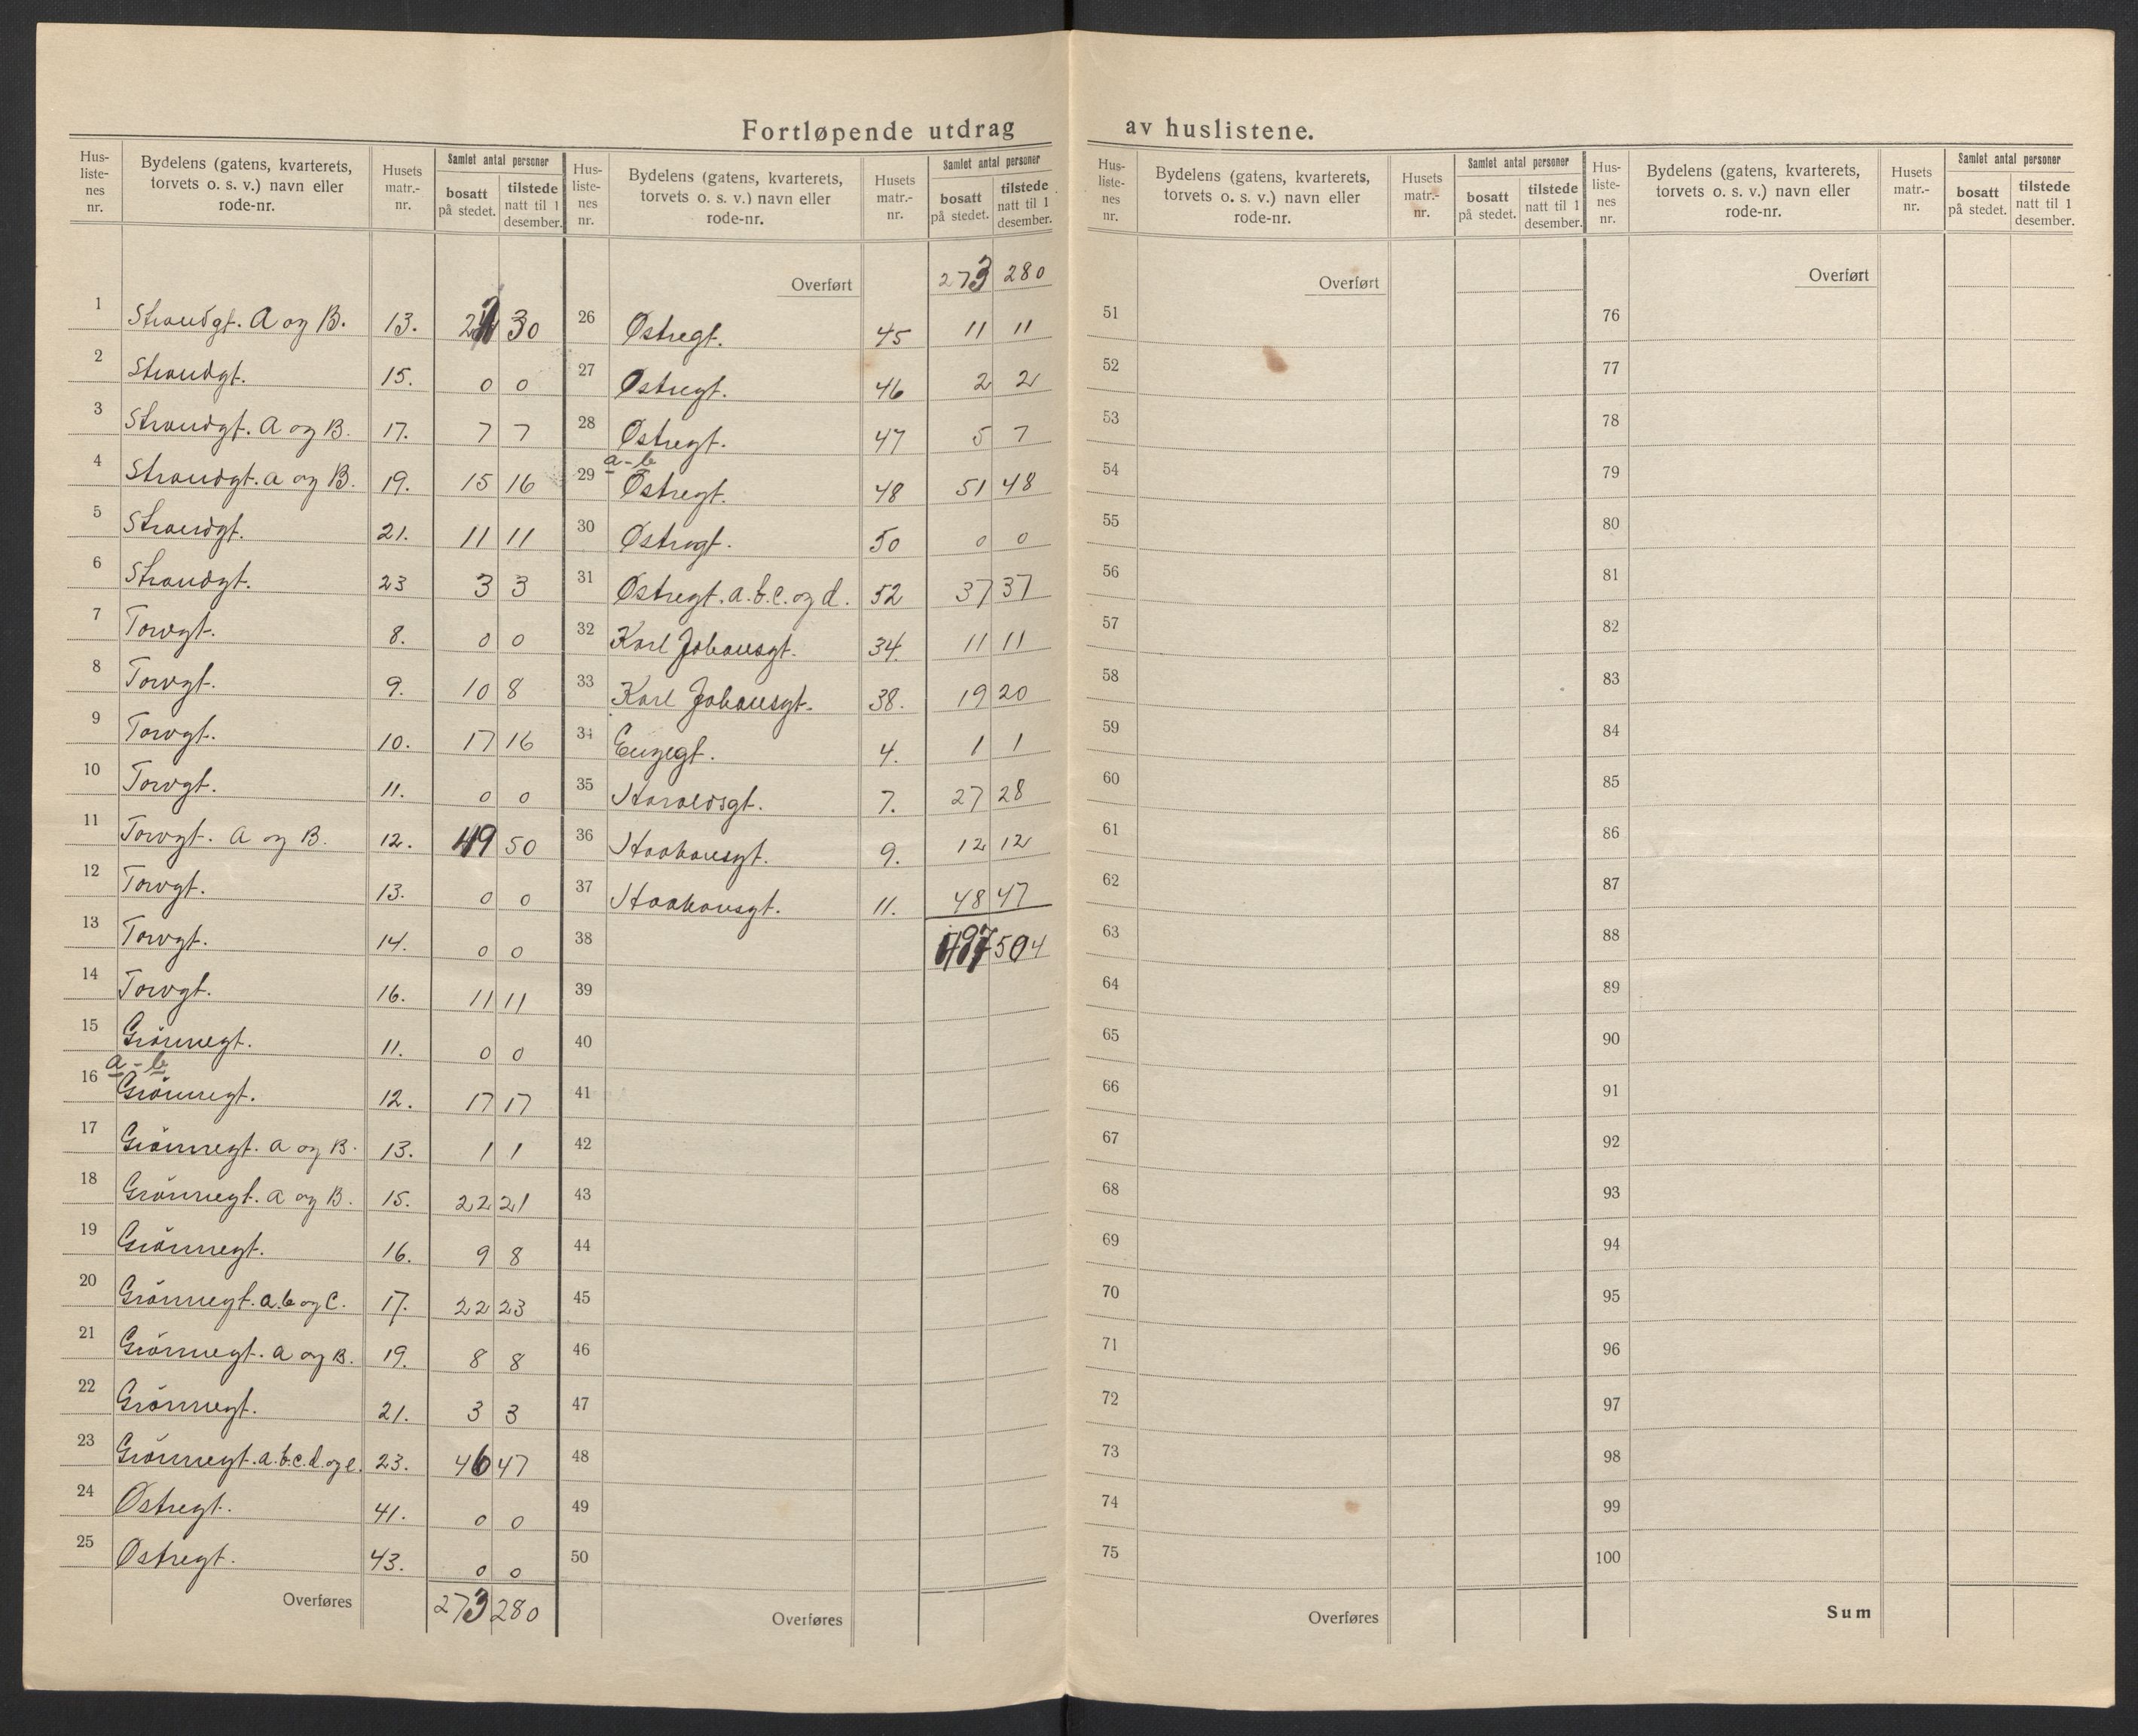 Fortløpende utdrag av huslistene.
Hus-liste-nes nr. | Bydelens (gatens, kvarterets, torvets o. s. v.) navn eller rode-nr. | Husets matr.-nr. | Samlet antal personer | bosatt på stedet. | tilstede natt til 1 desember.
1 Strandgt. A og B. 13. 30
2 Strandgt. 15. 0 0
3 Strandgt. A og B. 17. 7 7
4 Strandgt. a og B. 19. 15 16
5 Strandgt. 21. 11 11
6 Strandgt. 23 3 3
7 Torvgt. 8. 0 0
8 Torvgt. 9. 10 8
9 Torvgt. 10. 17 16
10 Torvgt. 11. 0 0
11 Torvgt. A og B. 12. 49 50
12 Torvgt. 13. 0 0
13 Torvgt. 14. 0 0
14 Torvgt. 16. 11 11
15 Grönnegt. 11. 0 0
a - b
16 Grönnegt. 12. 17 17
17 Grönnegt. a og B. 13. 1 1
18 Grönnegt. a og B. 15. 22 21
19 Grönnegt. 16. 9 8
20 Grönnegt. a.b og C. 17. 22 23
21 Grönnegt. a og B. 19. 8 8
22 Grönnegt. 21. 3 3
23 Grönnegt. a.b.c.d. og e. 23. 46 47
24 Østregt. 41. 0 0
25 Østregt. 43. 0 0
Overføres 273 280
Hus-liste-nes nr. | Bydelens (gatens, kvarterets, torvets o. s. v.) navn eller rode-nr. | Husets matr.-nr. | Samlet antal personer | bosatt på stedet. | tilstede natt til 1 desember.
Overført 273 280
26 Østregt. 45 11 11
27 Østregt. 46 2 2
28 Østregt. 47 5 7
a - b
29 Østregt. 48 51 48
30 Østregt. 50 0 0
31 Østregt. a.b.c. og d. 52 37 37
32 Karl Johansgt. 34. 11 11
33 Karl Johansgt. 38. 19 20
34 Engegt. 4. 1 1
35 Haraldsgt. 7. 27 28
36 Haakonsgt. 9. 12 12
37 Haakonsgt. 11. 48 47
38 497 504
39
40
41
42
43
44
45
46
47
48
49
50
Overføres
Hus-liste-nes nr. | Bydelens (gatens, kvarterets, torvets o. s. v.) navn eller rode-nr. | Husets matr.-nr. | Samlet antal personer | bosatt på stedet. | tilstede natt til 1 desember.
Overført
51
52
53
54
55
56
57
58
59
60
61
62
63
64
65
66
67
68
69
70
71
72
73
74
75
Overføres
Hus-liste-nes nr. | Bydelens (gatens, kvarterets, torvets o. s. v.) navn eller rode-nr. | Husets matr.-nr. | Samlet antal personer | bosatt på stedet. | tilstede natt til 1 desember.
Overført
76
77
78
79
80
81
82
83
84
85
86
87
88
89
90
91
92
93
94
95
96
97
98
99
100
Sum